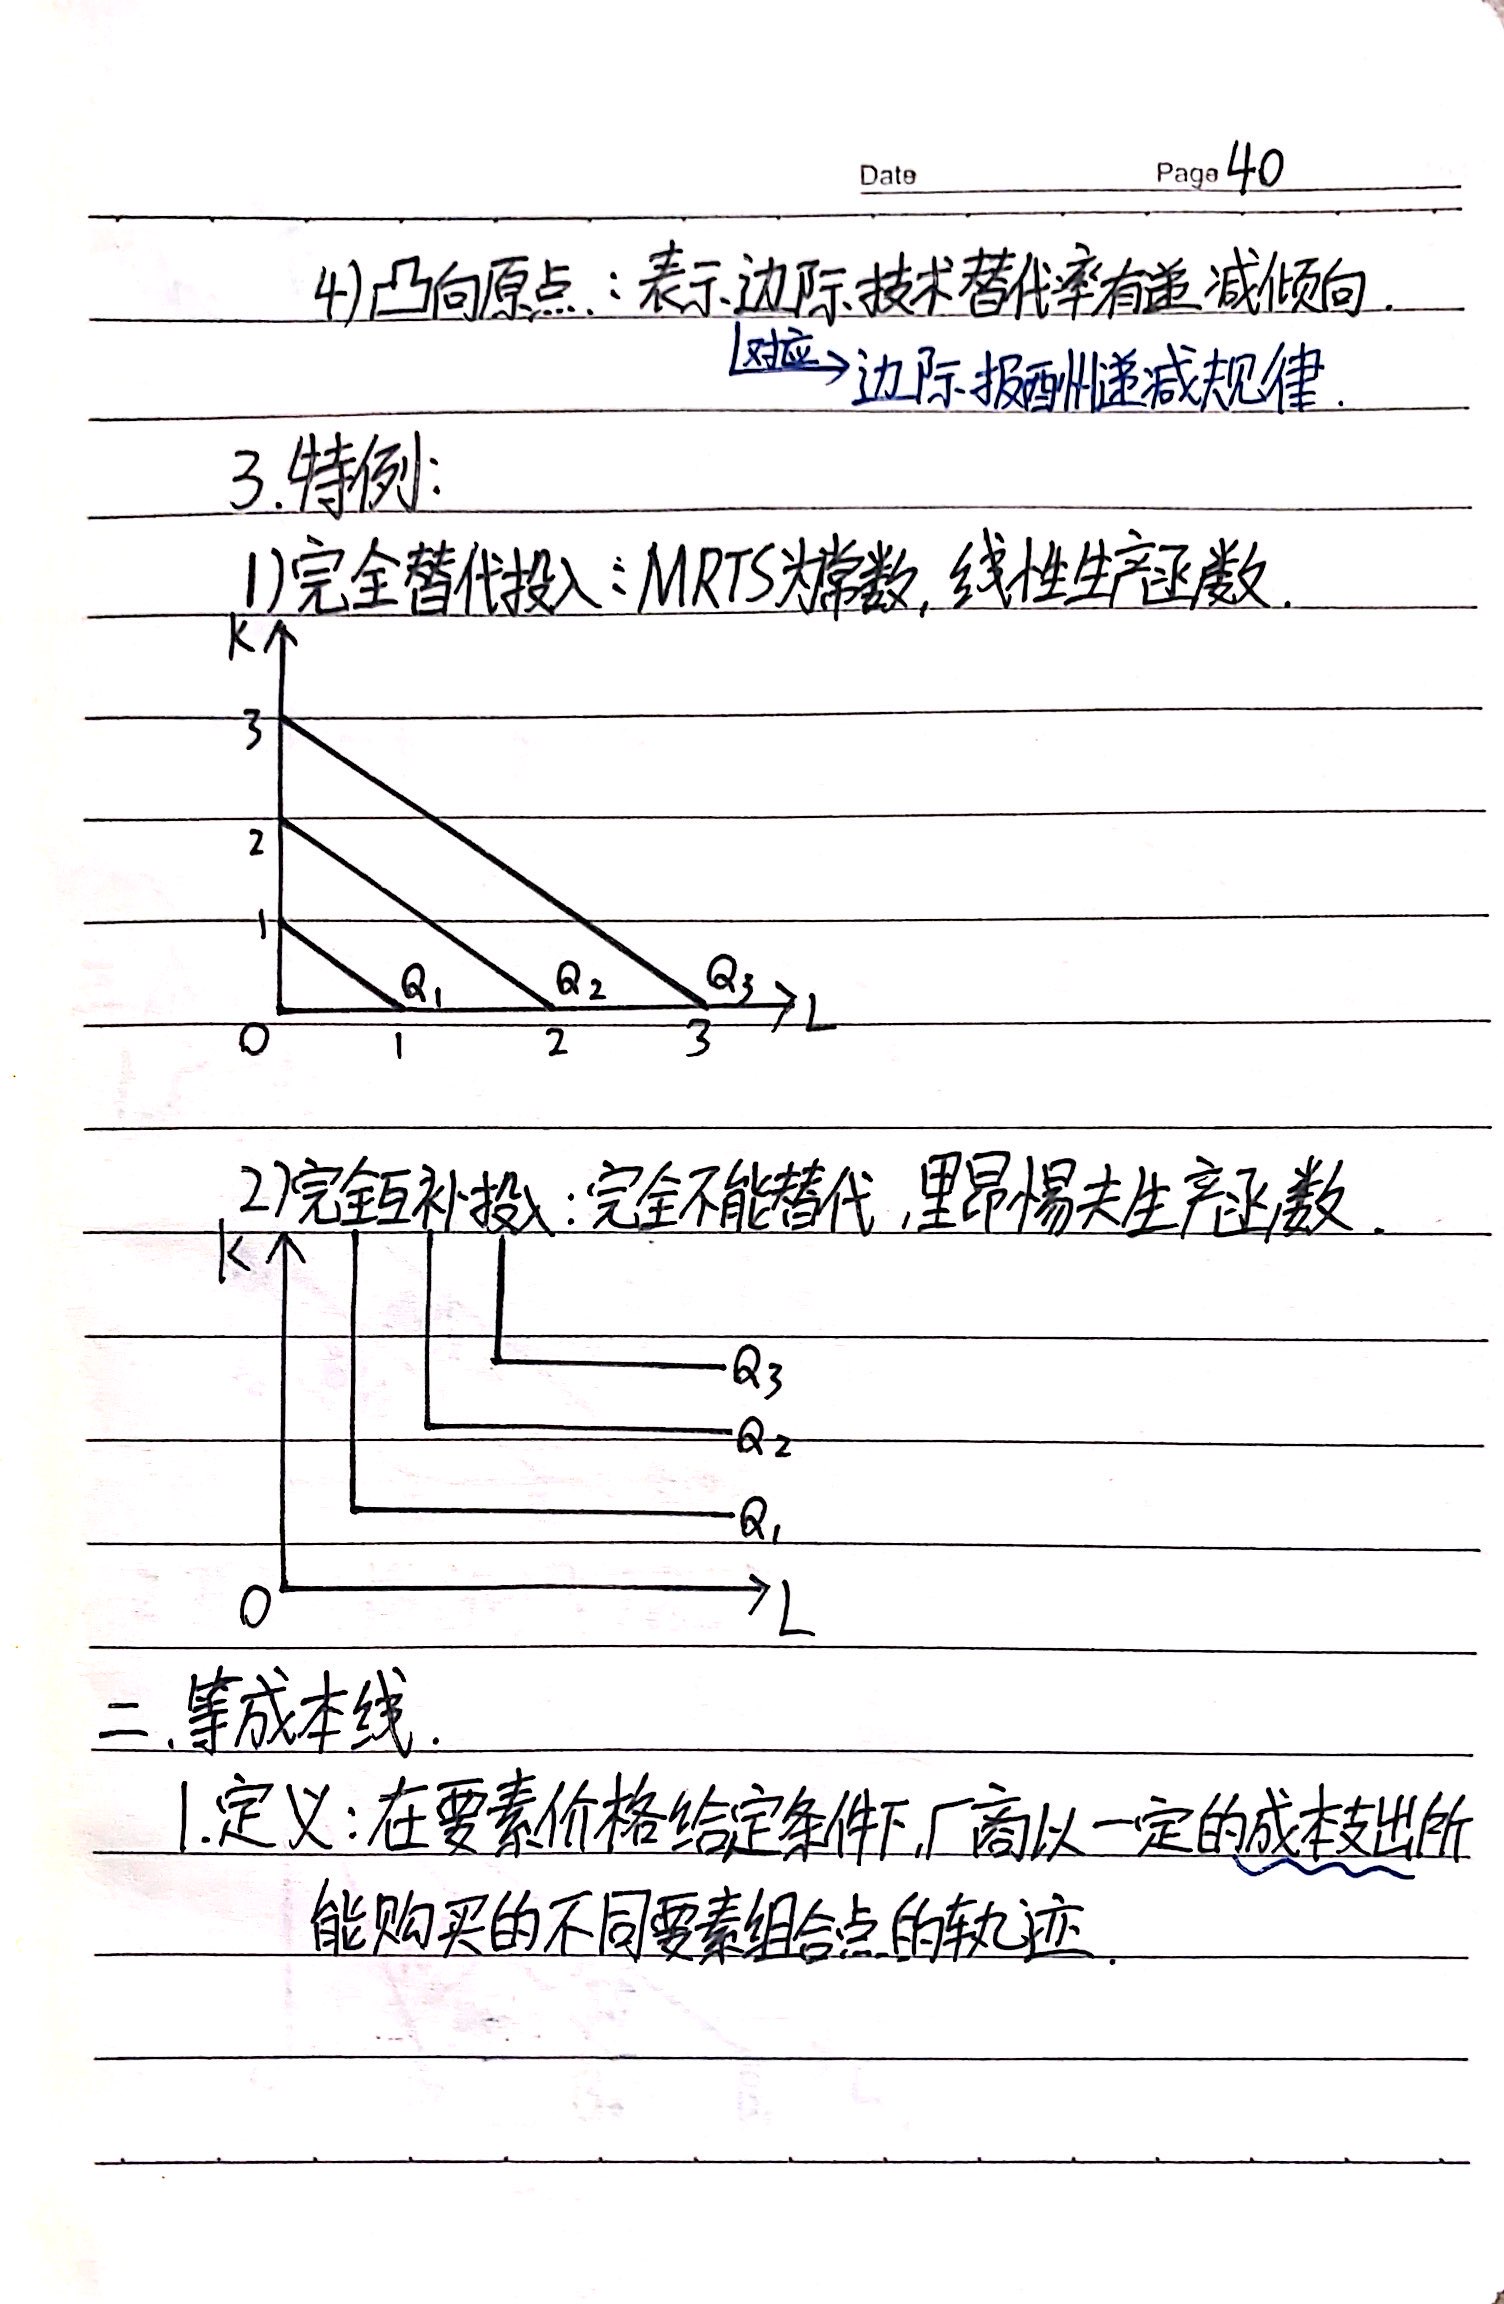 Date Page 40
4)凸向原点:表示边际技术替代率有递减倾向.
对应 边际报酬递减规律.
3.特例:
1)完全替代投入:MRTS为常数,线性生产函数.
K
3
2
1
Q₁ Q₂ Q₃
L
0 1 2 3
2)完全互补投入:完全不能替代,里昂惕夫生产函数.
K
Q₃
Q₂
Q₁
0 L
二.等成本线.
1.定义:在要素价格给定条件下,厂商以一定的成本支出所
能购买的不同要素组合点的轨迹.